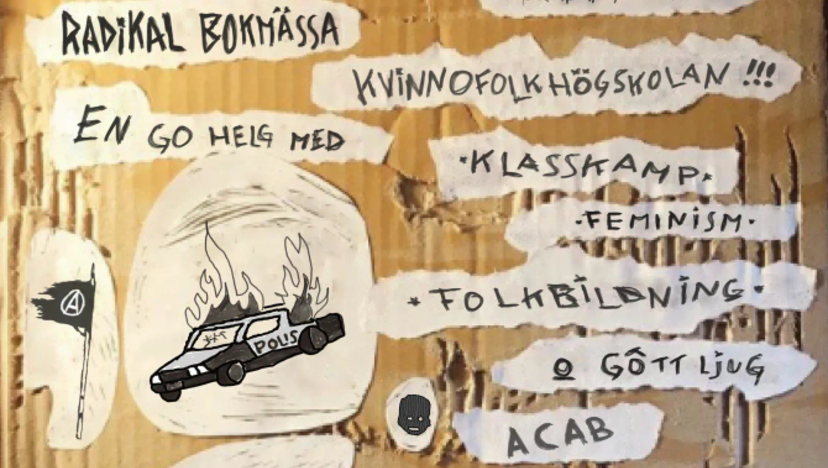 RADIKAL BOKMÄSSA
KVINNOFOLKHÖGSKOLAN !!!
EN GO HELG MED
·KLASSKAMP·
·FEMINISM·
·FOLKBILDNING·
O GÔTT LJUG
ACAB
POLIS
A